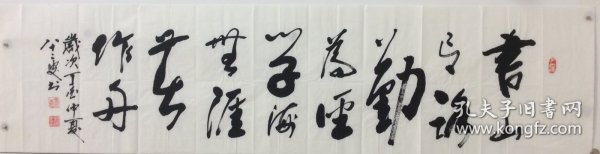 書山
有路
勤
為徑
学海
無涯
苦
作舟
歲次丁仲夏
孔夫子旧书网
www.kongfz.com